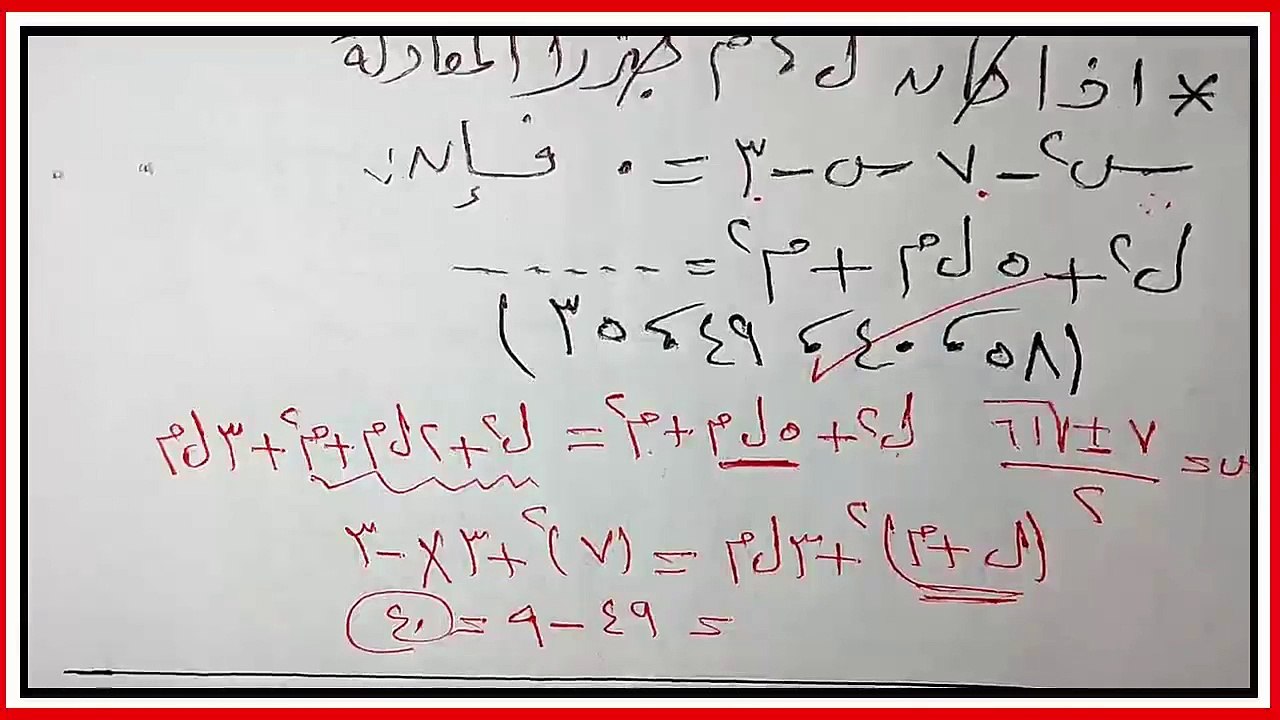 * اذا كان ل ، م جذرا المعادلة
س٢ - ٧ س - ٣ = ٠ فإن :
ل٢ + ٥ ل م + م٢ = -----
(٥٨ ، ٤٠ ، ٤٩ ، ٣٥)
س = (٧ ± √٦١) / ٢
ل٢ + ٥ ل م + م٢ = ل٢ + ٢ ل م + م٢ + ٣ ل م
(ل + م)٢ + ٣ ل م = (٧)٢ + ٣ × -٣
= ٤٩ - ٩ = ٤٠